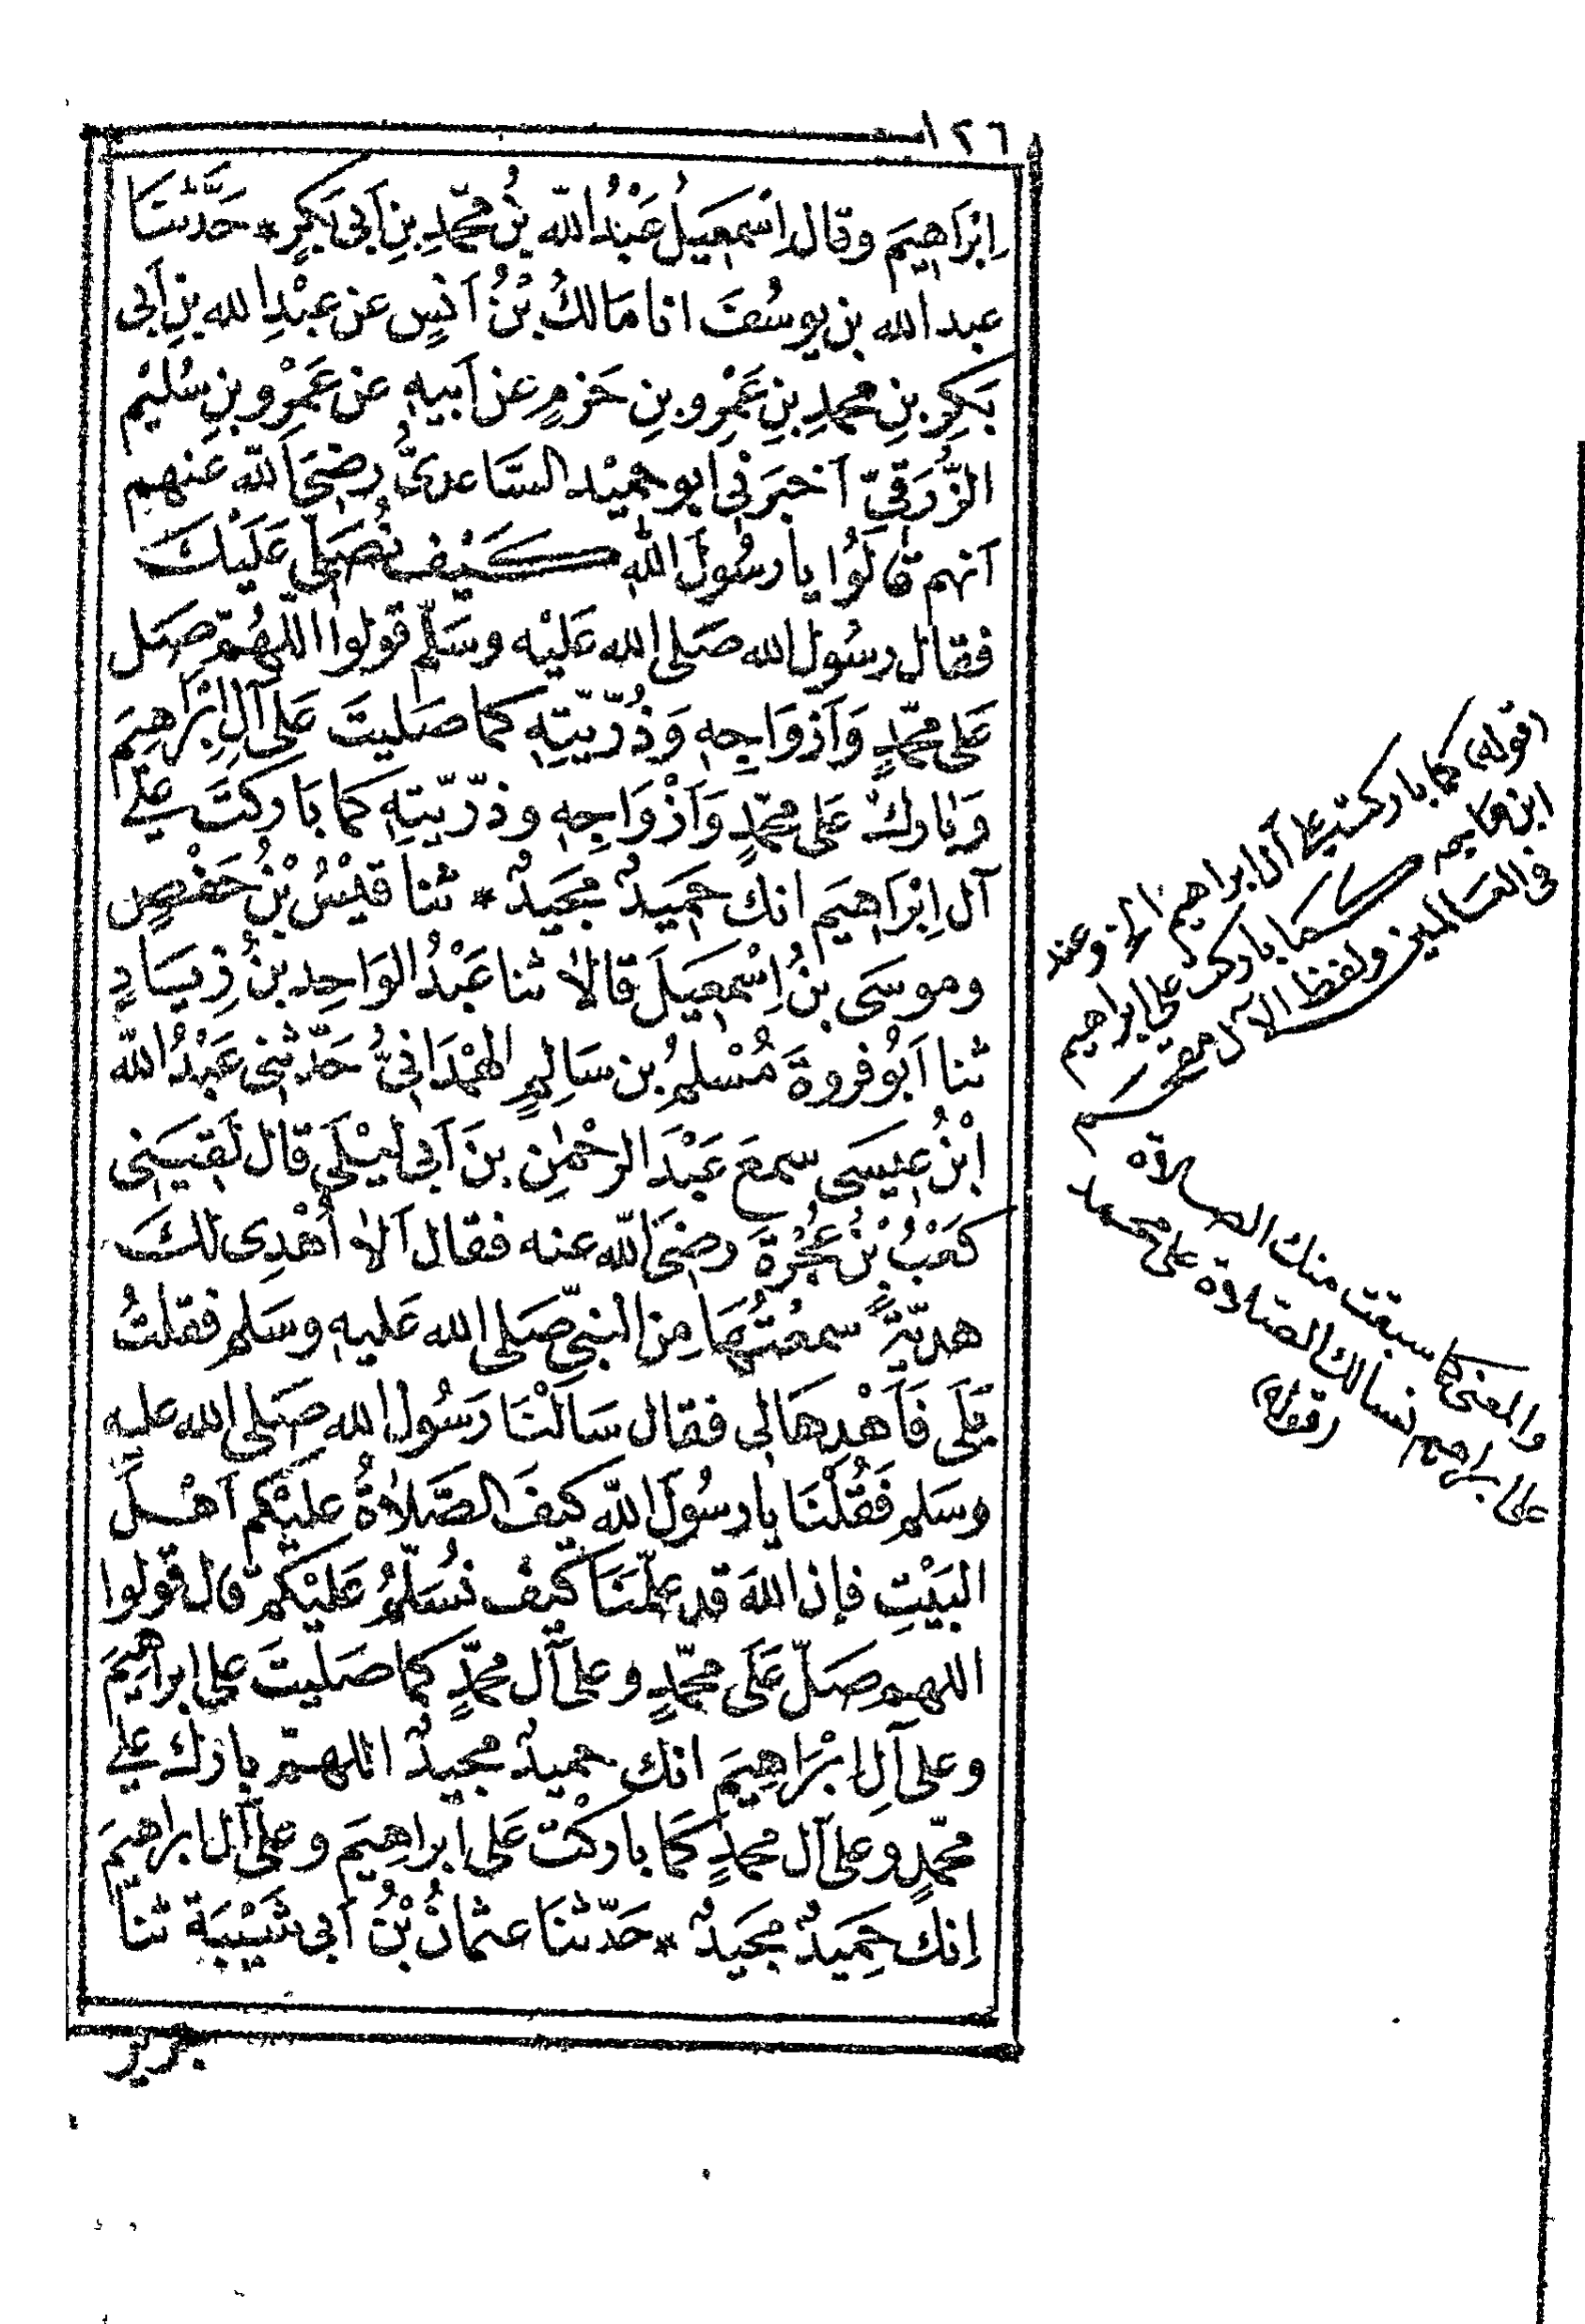 ١٢٦
اِبْرَاهِيمَ وقال اِسْمٰعِيلُ عَبْدُ اللّٰه بْنُ مُحَمَّدِ بنِ اَبى بَكرٍ * حَدَّثنَا
عبد الله بن يوسُفَ انا مَالكُ بْنُ اَنسٍ عن عبْدِ الله بنِ اَبى
بَكرِ بنِ محمدِ بنِ عَمْرِو بنِ حَزمٍ عن اَبيهِ عن عَمْرِو بنِ سُليْمٍ
الزُّرَقِىّ اَخبَرَنى ابو حميْد السَّاعدىُّ رضِىَ اللّٰه عنهم
اَنهم قالُوا يا رسُولَ اللهِ كَيْف نُصَلِّى عَلَيْكَ
فقال رسُول الله صَلى الله عَليْه وسَلّم قولوا اللهُمّ صَل
عَلى محمّدٍ وَاَزوَاجِهِ وَذُرّيّتِهِ كما صَليتَ عَلى آلِ اِبْرَاهِيمَ
وَبَارِكْ عَلى محمّدٍ وَاَزْوَاجِهِ وذرّيّتِهِ كما بَاركتَ على
آل اِبْرَاهِيم انك حَمِيدٌ مَجِيدٌ * ثنا قيْسُ بْنُ حَفْصٍ
وموسَى بنُ اِسْمٰعِيلَ قالاَ ثنا عَبْدُ الوَاحِد بنُ زِيَادٍ
ثنا اَبُو فروةَ مُسْلمُ بن سَالِمٍ الهمْدَانىُّ حَدّثنِى عَبْدُ اللّٰه
ابْنُ عِيسَى سمعَ عَبْدَ الرحْمٰنِ بنَ اَبى ليْلَى قال لَقيَنِى
كَعْبُ بْنُ عُجْرَةَ رضِىَ اللّٰه عنه فقال اَلاَ اُهْدِى لكَ
هديّةً سمعْتُهَا مِنَ النبىّ صَلى الله عَليهِ وسَلم فقلتُ
بَلَى فَاَهْدِهَا لى فقال سَاَلْنَا رَسُولَ الله صَلى الله عليهِ
وسَلم فَقُلْنَا يا رسُولَ اللّٰه كيفَ الصَّلاَةُ عليْكم اَهْلَ
البَيْتِ فإن اللهَ قد علّمَنَا كيفَ نُسَلّمُ عَليْكم قال قولوا
اللهم صَلّ عَلَى محمّدٍ وعلى آل محمّدٍ كما صَليتَ على ابراهِيمَ
وعلى آلِ ابْرَاهِيمَ انك حميدٌ مجيدٌ اللهمّ بارك على
محمّدٍ وعلى آل محمدٍ كما باركْت عَلى ابراهِيمَ وعلى آل ابراهِيمَ
اِنك حَمِيدٌ مجَيدٌ * حَدّثنَا عثمانُ بْنُ اَبى شَيْبَة ثنا
جرير
(قوله) كما باركت على آل ابراهيم الخ وعند
ابن كما باركت على ابراهيم
فى العالمين ولفظ الآل مقحم
والمعنى كما سبقت منك الصلاة
على ابراهيم نسالك الصّلاة على محمد
(قوله)